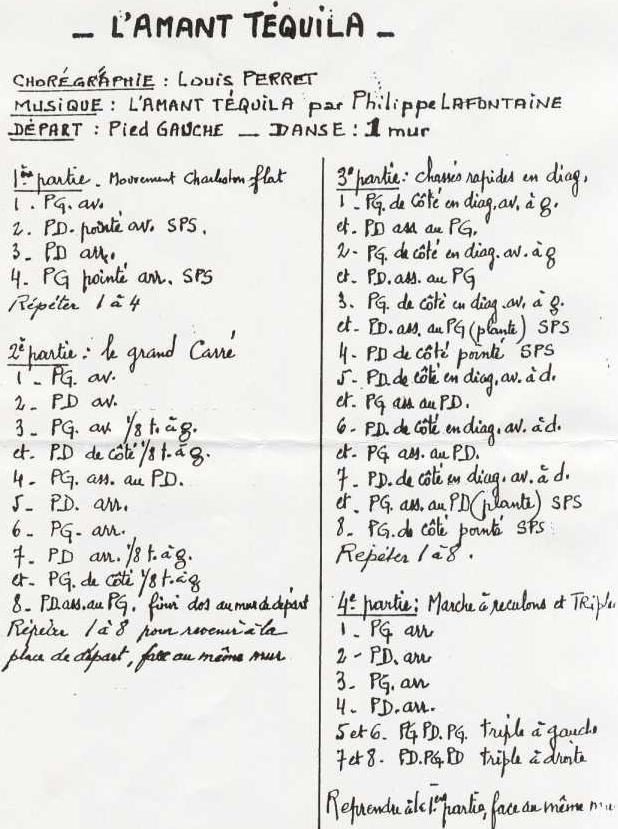 - L'AMANT TÉQUILA -
CHORÉGRAPHIE : LOUIS PERRET
MUSIQUE : L'AMANT TÉQUILA par Philippe LAFONTAINE
DÉPART : Pied GAUCHE — DANSE : 1 mur
1ère partie - Mouvement Charleston flat
1. PG. av.
2. PD. pointé av. SPS.
3. PD arr.
4. PG pointé arr. SPS
Répéter 1 à 4
2è partie : le grand Carré
1 - PG. av.
2 - PD av.
3 - PG. av. 1/8 t. à g.
et - PD de côté 1/8 t. à g.
4 - PG. ass. au PD.
5 - PD. arr.
6 - PG - arr.
7 - PD arr. 1/8 t. à g.
et - PG. de côté 1/8 t. à g
8 - PD. ass. au PG. finir dos au mur de départ
Répéter 1 à 8 pour revenir à la
place de départ, face au même mur
3e partie : Chassés rapides en diag.
1 - PG. de côté en diag. av. à g.
et. PD ass au PG.
2 - PG. de côté en diag. av. à g
et - PD. ass. au PG
3. PG. de côté en diag. av. à g.
et - PD. ass. au PG (plante) SPS
4 - PD de côté pointé SPS
5 - PD. de côté en diag. av. à d.
et. PG ass au PD.
6 - PD. de côté en diag. av. à d.
et - PG ass. au PD.
7 - PD. de côté en diag. av. à d.
et. PG. ass. au PD (plante) SPS
8. PG. de côté pointé SPS
Répéter 1 à 8.
4e partie : Marche à reculons et TRiple
1 - PG arr
2 - PD. arr
3 - PG. arr
4 - PD. arr.
5 et 6. PG PD. PG. triple à gauche
7 et 8 - PD. PG. PD triple à droite
Reprendre à la 1ère partie, face au même